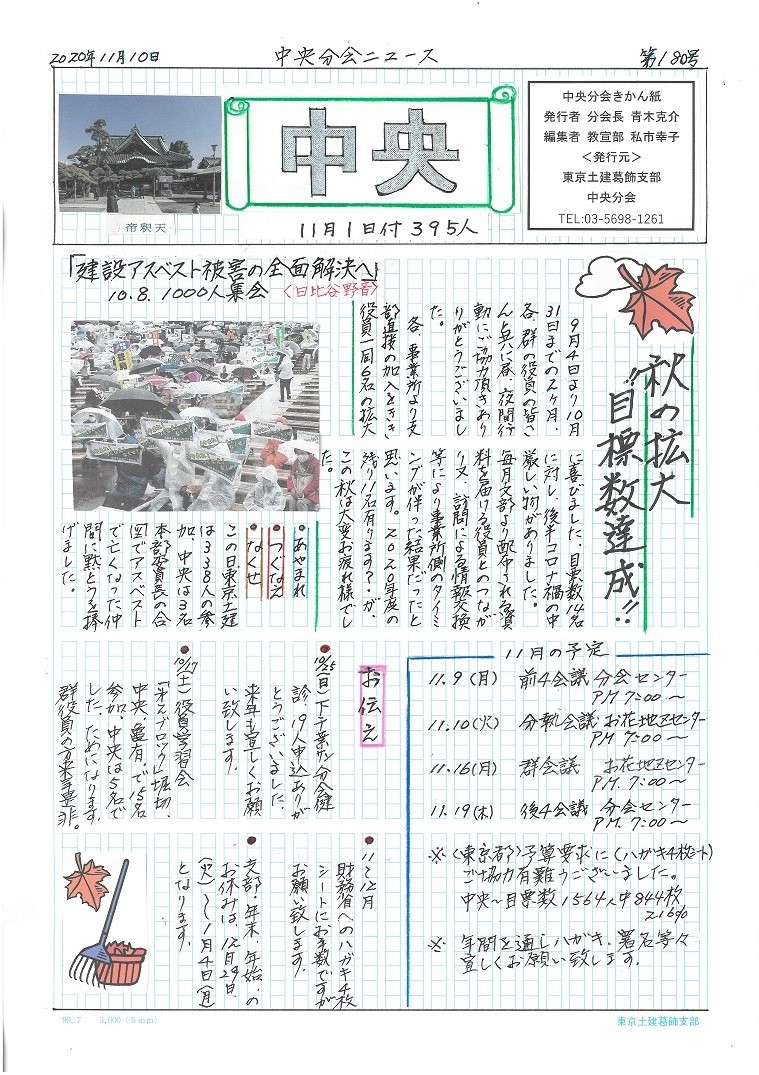 2020年11月10日
中央分会ニュース
第180号
帝釈天
中央
11月1日付395人
中央分会きかん紙
発行者 分会長 青木克介
編集者 教宣部 私市幸子
＜発行元＞
東京土建葛飾支部
中央分会
TEL:03-5698-1261
秋の拡大
"目標数達成!!
9月4日より10月
31日までの2ヶ月、
各、群の役員の皆さ
んと共に昼、夜間行
動にご協力頂きあり
りがとうございまし
た。
各、事業所より支
部直接の加入をきき
役員一同6名の拡大
に喜びました、目票数14名
に対し、後半コロナ禍の中
厳しい物がありました。
毎月支部より配布される資
料を届ける役員とのつなが
り又、訪問による情報交換
等により事業所側のタイミ
ングが伴った結果だったと
思います。2020年度の
残り11名有ります?・が、
この秋は大変お疲れ様でし
た。
「建設アスベスト被害の全面解決へ」
10.8.1000人集会〈日比谷野音〉
・あやまれ
・つぐなえ
・なくせ
この日東京土建
は338人の参
加、中央は3名
本部委員長の合
図でアスベスト
で亡くなった仲
間に黙とうを捧
げました。
お伝え
10/25(日)下千葉サン分会健
診、19人申込ありが
とうございました、
来年も宜しくお願
い致します。
10/17(土)役員学習会
堀切、
中央、亀有、で15名
参加、中央は5名で
した、ためになります、
群役員の方来季是非。
11〜12月
財務省へのハガキ4枚
シートにお手数ですが
お願い致します。
支部・年末・年始・の
お休みは、12月29日
(火)〜1月4日(月)
となります。
11月の予定
11.9(月) 前4会議 分会センター
PM 7:00〜
11.10(火) 分執会議 お花地区センター
PM 7:00〜
11.16(月) 群会議 お花地区センター
PM.7:00〜
11.19(木) 後4会議 分会センター
PM.7:00〜
※〈東京都〉予算要求に(ハガキ4枚シート)
ご協力有難うございました。
中央〜目票数1564人中844枚
216%
※ 年間を通しハガキ、署名等々
宜しくお願い致します。
99.7 3,000（5mm）
東京土建葛飾支部